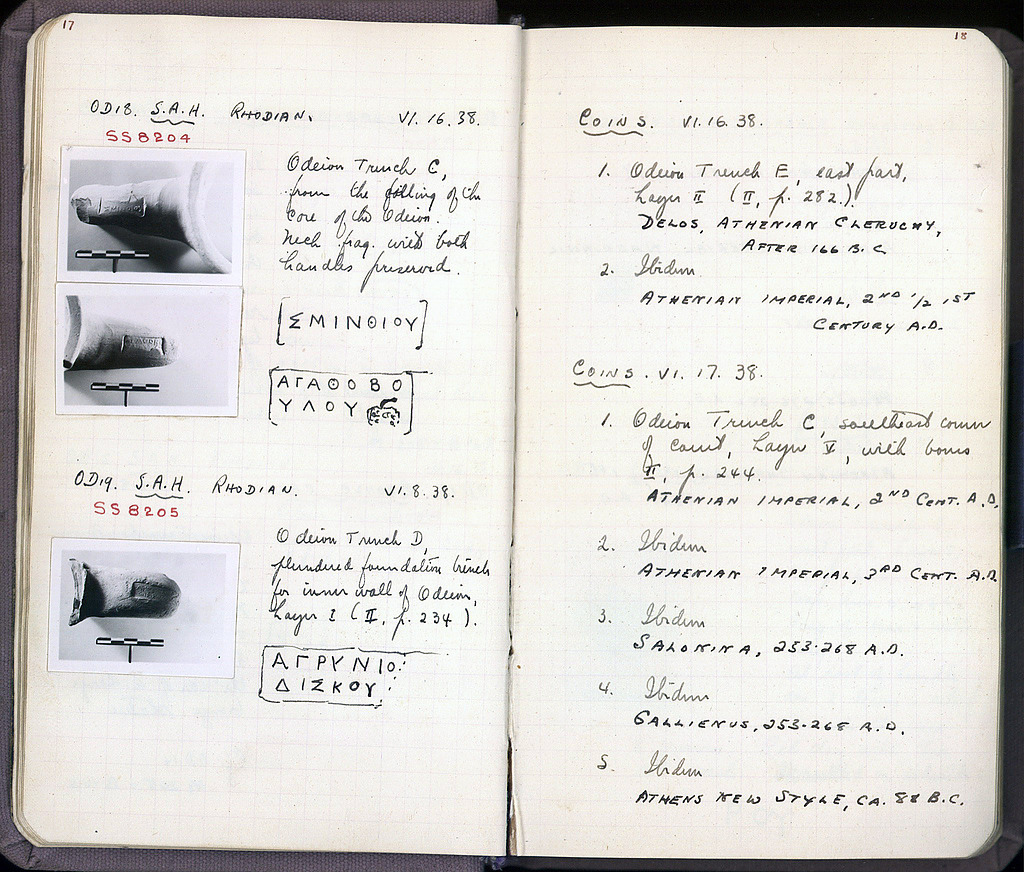 17
OD18. S.A.H. RHODIAN. VI. 16. 38.
SS8204
Odeion Trench C,
from the filling of the
core of the Odeion.
Neck frag. with both
handles preserved.
[ΣΜΙΝΘΙΟΥ]
ΑΓΑΘΟΒΟ
ΥΛΟΥ
OD19. S.A.H. RHODIAN. VI. 8. 38.
SS8205
Odeion Trench D,
plundered foundation trench
for inner wall of Odeion,
Layer I (II, p. 234).
ΑΓΡΥΝΙΟ
ΔΙΣΚΟΥ
18
COINS. VI. 16. 38.
1. Odeion Trench E, east part,
Layer II (II, p. 282).
DELOS, ATHENIAN CLERUCHY,
AFTER 166 B.C
2. Ibidem
ATHENIAN IMPERIAL, 2ND 1/2 1ST
CENTURY A.D.
COINS. VI. 17. 38.
1. Odeion Trench C, southeast corner
of court, Layer V, with bones
II, p. 244.
ATHENIAN IMPERIAL, 2ND CENT. A.D.
2. Ibidem
ATHENIAN IMPERIAL, 3RD CENT. A.D.
3. Ibidem
SALONINA, 253-268 A.D.
4. Ibidem
GALLIENUS, 253-268 A.D.
5. Ibidem
ATHENS NEW STYLE, CA. 88 B.C.